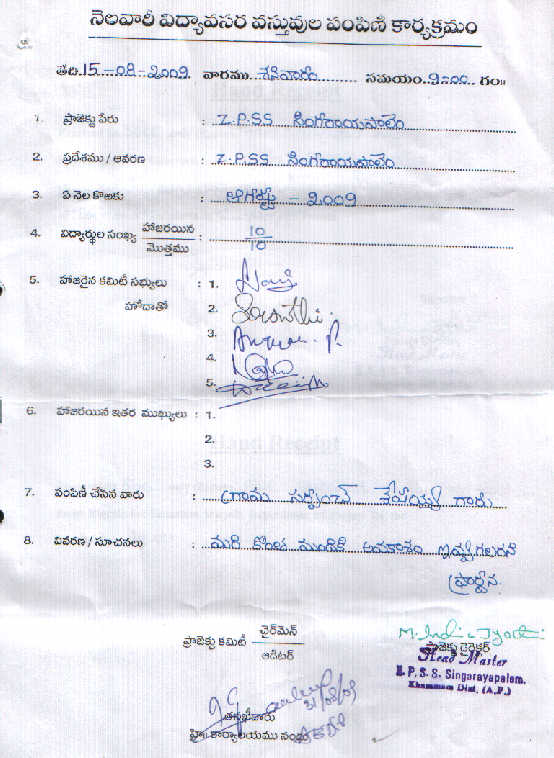 నెలవారీ విద్యావసర వస్తువుల పంపిణి కార్యక్రమం
తేది. 15-08-2009 వారము. శనివారం ........... సమయం. 9-00 గం॥
1. ప్రాజెక్టు పేరు : Z.P.SS సింగరాయపాలెం
2. ప్రదేశము / ఆవరణ : Z.P.SS సింగరాయపాలెం
3. ఏ నెల కొఱకు : ఆగష్టు - 2009
4. విద్యార్థుల సంఖ్య హాజరయిన / మొత్తము : 10 / 10
5. హాజరైన కమిటీ సభ్యులు : 1.
హోదాతో 2.
3.
4.
5.
6. హాజరయిన ఇతర ముఖ్యులు : 1.
2.
3.
7. పంపిణీ చేసిన వారు : గ్రామ సర్పంచ్ శేషయ్య గారు
8. వివరణ / సూచనలు : మరి కొంత మందికి అవకాశం ఇవ్వగలరని
ప్రార్థన.
ప్రాజెక్టు కమిటీ చైర్‌మెన్ / ఆడిటర్
M. Indira Jyothi
ప్రాజెక్టు డైరెక్టర్
Head Master
Z.P.S.S. Singarayapalem.
Khammam Dist. (A.P.)